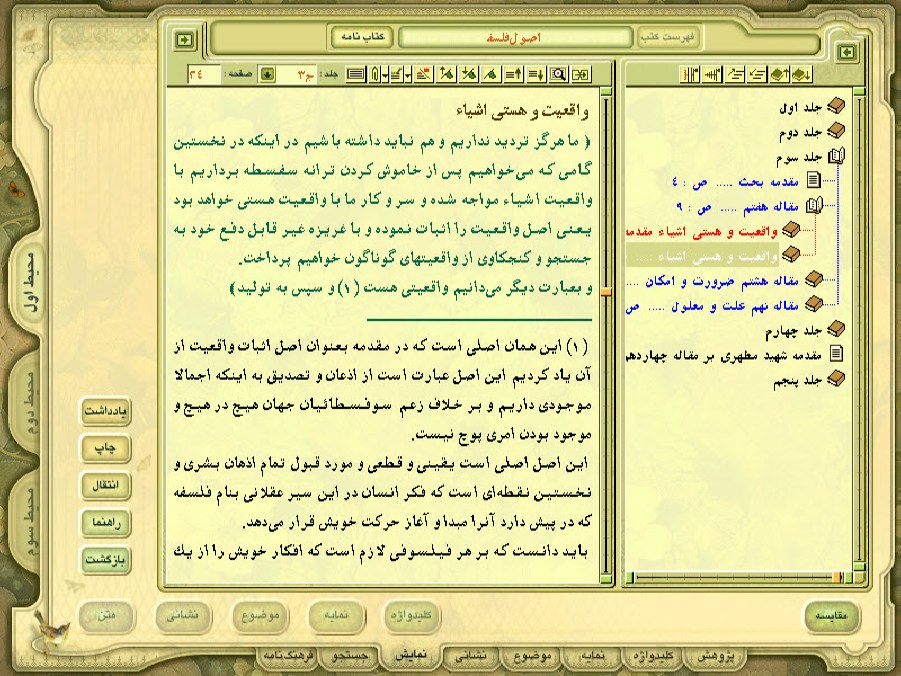 فهرست کتب
اصول فلسفه
کتاب نامه
جلد : ج۳ صفحه : ٢٤
جلد اول
جلد دوم
جلد سوم
مقدمه بحث ..... ص : ٤
مقاله هفتم ..... ص : ٩
واقعیت و هستی اشیاء مقدمه
واقعیت و هستی اشیاء ....
مقاله هشتم ضرورت و امکان ....
مقاله نهم علت و معلول ..... ص
جلد چهارم
مقدمه شهید مطهری بر مقاله چهاردهم
جلد پنجم
واقعیت و هستی اشیاء
( ما هرگز تردید نداریم و هم نباید داشته باشیم در اینکه در نخستین
گامی که می‌خواهیم پس از خاموش کردن ترانه سفسطه برداریم با
واقعیت اشیاء مواجه شده و سر و کار ما با واقعیت هستی خواهد بود
یعنی اصل واقعیت را اثبات نموده و با غریزه غیر قابل دفع خود به
جستجو و کنجکاوی از واقعیتهای گوناگون خواهیم پرداخت.
و بعبارت دیگر می‌دانیم واقعیتی هست (۱) و سپس به تولید)
(۱) این همان اصلی است که در مقدمه بعنوان اصل اثبات واقعیت از
آن یاد کردیم این اصل عبارت است از اذعان و تصدیق به اینکه اجمالا
موجودی داریم و بر خلاف زعم سوفسطائیان جهان هیچ در هیچ و
موجود بودن امری پوچ نیست.
این اصل اصلی است یقینی و قطعی و مورد قبول تمام اذهان بشری و
نخستین نقطه‌ای است که فکر انسان در این سیر عقلانی بنام فلسفه
که در پیش دارد آنرا مبدا و آغاز حرکت خویش قرار می‌دهد.
باید دانست که بر هر فیلسوفی لازم است که افکار خویش را از یك
محیط اول
محیط دوم
محیط سوم
یادداشت
چاپ
انتقال
راهنما
بازگشت
مقایسه
کلیدواژه
نمایه
موضوع
نشانی
متن
پژوهش
کلیدواژه
نمایه
موضوع
نشانی
نمایش
جستجو
فرهنگ‌نامه